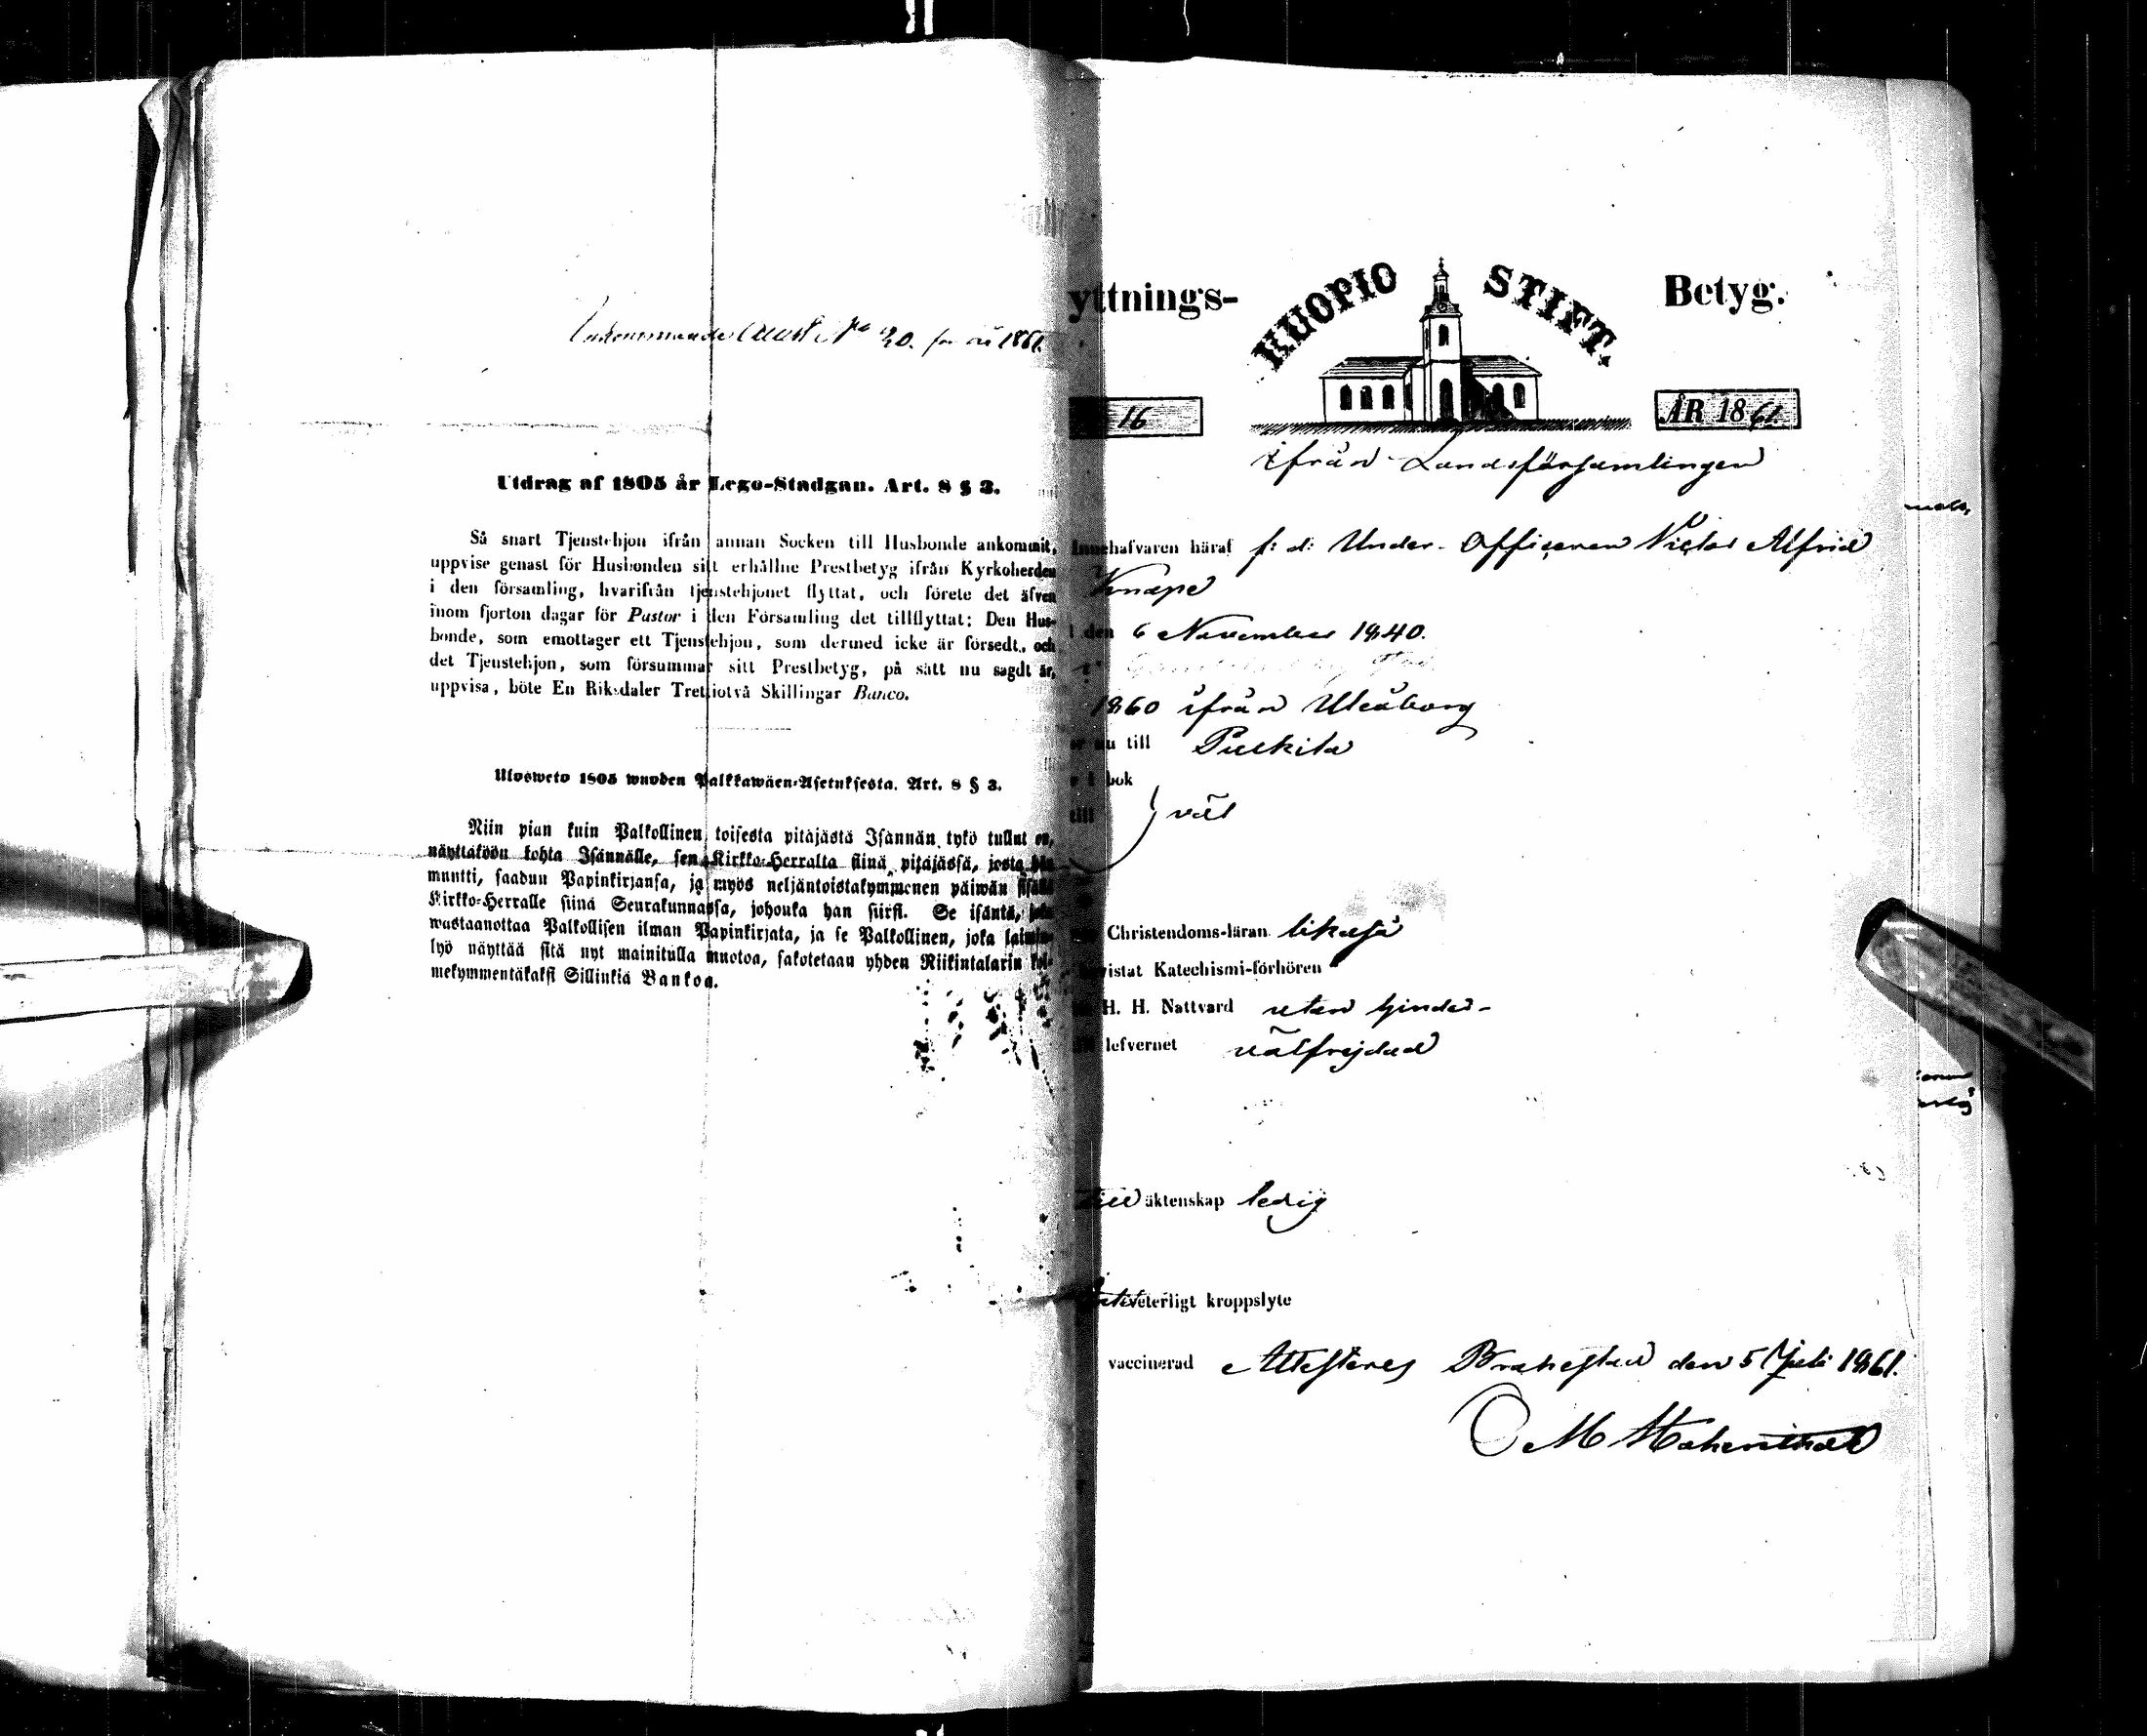 Inkommande Attest No 20. för år 1861.
Utdrag af 1805 år Lego-Stadgan. Art. 8 § 3.
Så snart Tjenstehjon ifrån annan Socken till Husbonde ankommit,
uppvise genast för Husbonden sitt erhållne Prestbetyg ifrån Kyrkoherden
i den församling, hvarifrån tjenstehjonet flyttat, och förete det äfven
inom fjorton dagar för Pastor i den Församling det tillflyttat: Den Hus-
bonde, som emottager ett Tjenstehjon, som dermed icke är försedt, och
det Tjenstehjon, som försummar sitt Prestbetyg, på sätt nu sagdt är,
uppvisa, böte En Riksdaler Trettiotvå Skillingar Banco.
Ulosweto 1805 wuoden Palkkawäen-Asetuksesta. Art. 8 § 3.
Niin pian kuin Palkollinen toisesta pitäjästä Isännän tykö tullut on,
näyttäköön kohta Isännälle, sen Kirkko-Herralta siinä pitäjässä, josta hän
muutti, saadun Papinkirjansa, ja myös neljäntoistakymmenen päiwän sisällä
Kirkko-Herralle siinä Seurakunnassa, johonka hän siirsi. Se isäntä, joka
wastaanottaa Palkollisen ilman Papinkirjata, ja se Palkollinen, joka laimin-
lyö näyttää sitä nyt mainitulla muotoa, sakotetaan yhden Riikintalarin kol-
mekymmentäkaksi Sillinkiä Bankoa.
yttnings- KUOPIO STIFT. Betyg.
16 ÅR 1861.
ifrån Landsförsamlingen
Innehafvaren häraf f: d: Under-Officeren Victor Alfrid
Knape
den 6 November 1840.
1860 ifrån Uleåborg
nu till Pulkila
i bok
till väl
Christendoms-läran likaså
bevistat Katechismi-förhören
H. H. Nattvard utan hinder
lefvernet välfrejdad
Till äktenskap ledig
veterligt kroppslyte
vaccinerad Attesteras Brahestad den 5 Juli 1861.